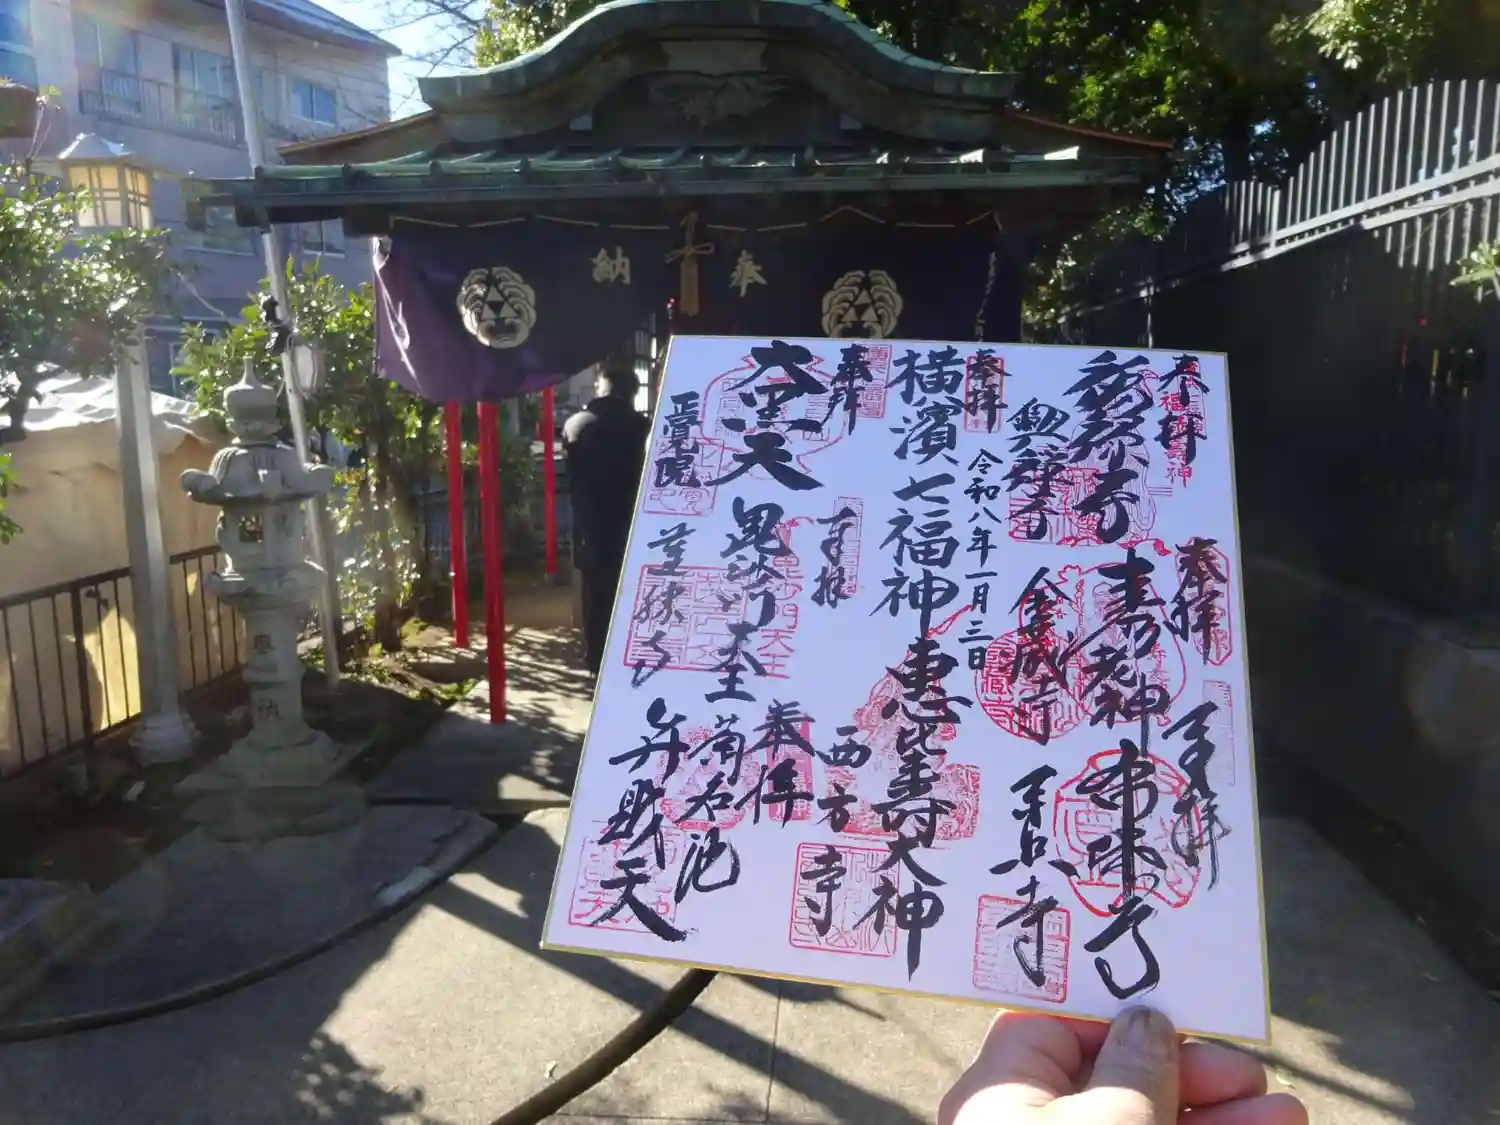 奉納
奉拝
福禄寿神
興禅寺
奉拝
寿老神
金蔵寺
奉拝
布袋尊
東照寺
奉拝
横濱七福神
令和八年一月三日
恵比寿大神
西方寺
奉拝
大黒天
正覚院
奉拝
毘沙門天王
蓮勝寺
奉拝
菊名池
弁財天
奉納